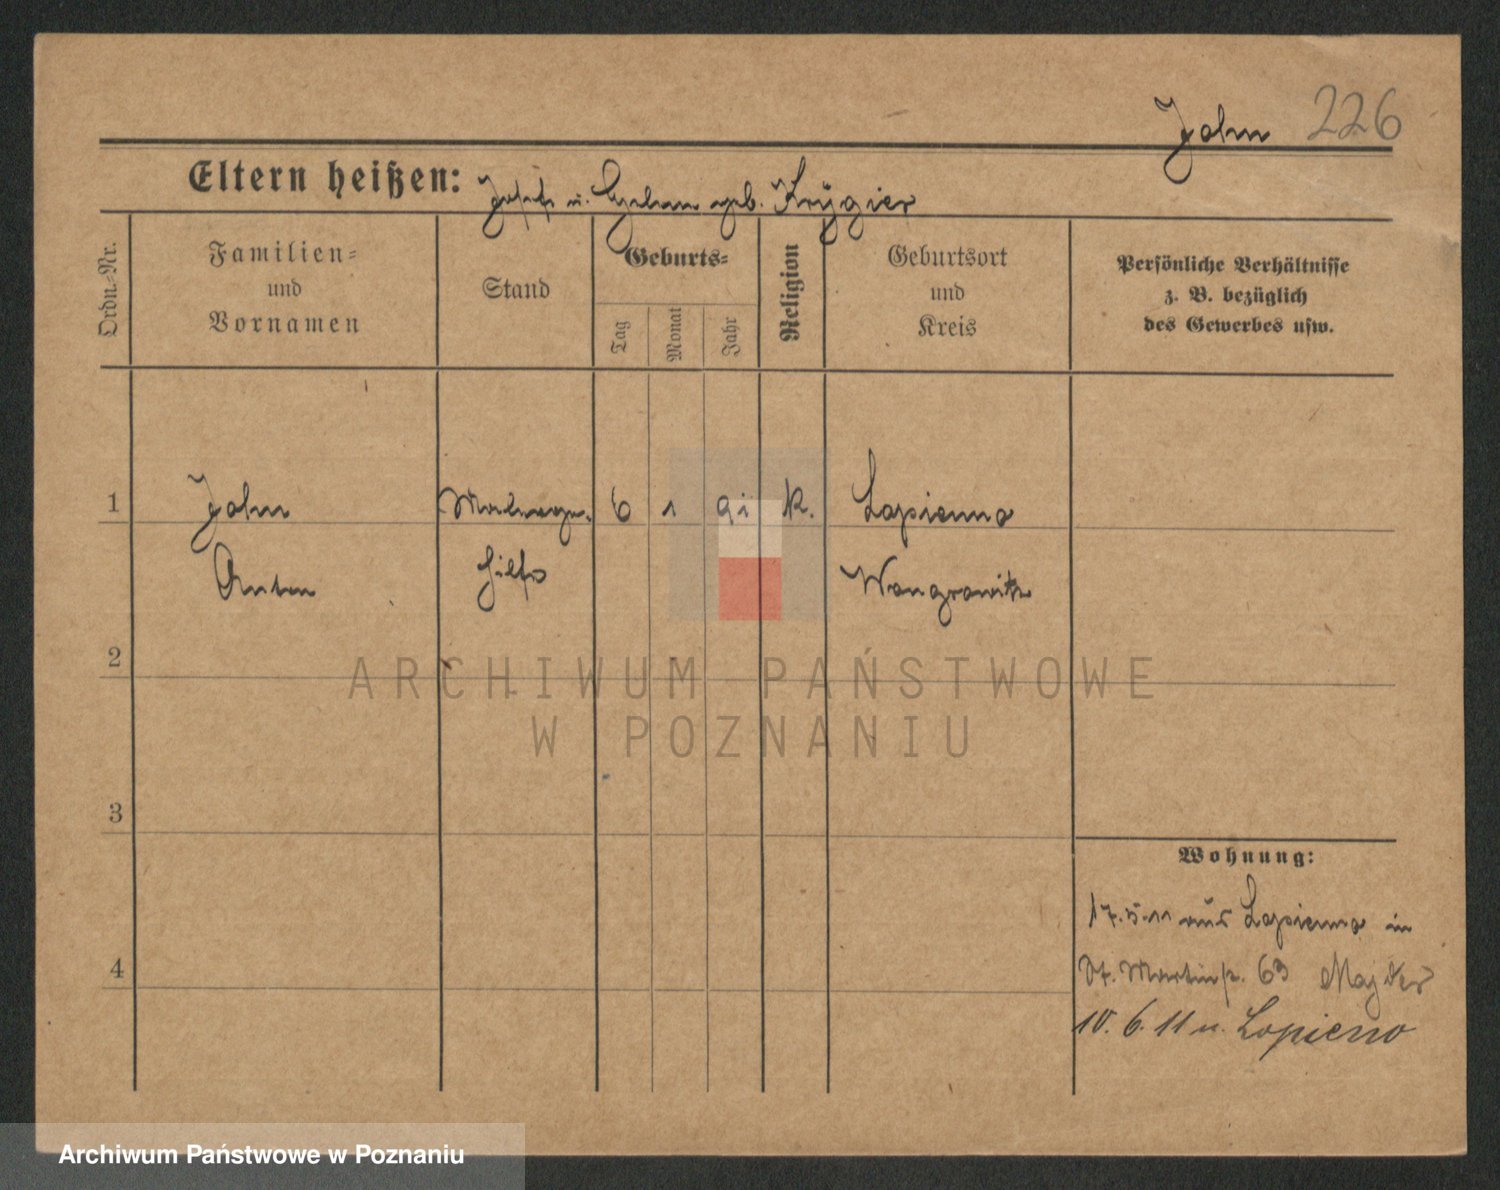 John 226
Eltern heißen: Josef u. Helene geb. Krügier
Ordn.-Nr.
Familien=
und
Vornamen
Stand
Geburts=
Tag
Monat
Jahr
Religion
Geburtsort
und
Kreis
Persönliche Verhältnisse
z. B. bezüglich
des Gewerbes usw.
1 John 6 1 91 k. Lopienno
Anton Hilfs Wongrowitz
2
ARCHIWUM PAŃSTWOWE
W POZNANIU
3
4
Wohnung:
17.5.11 aus Lopienno in
St. Martinstr. 63
10. 6. 11 n. Lopieno
Archiwum Państwowe w Poznaniu